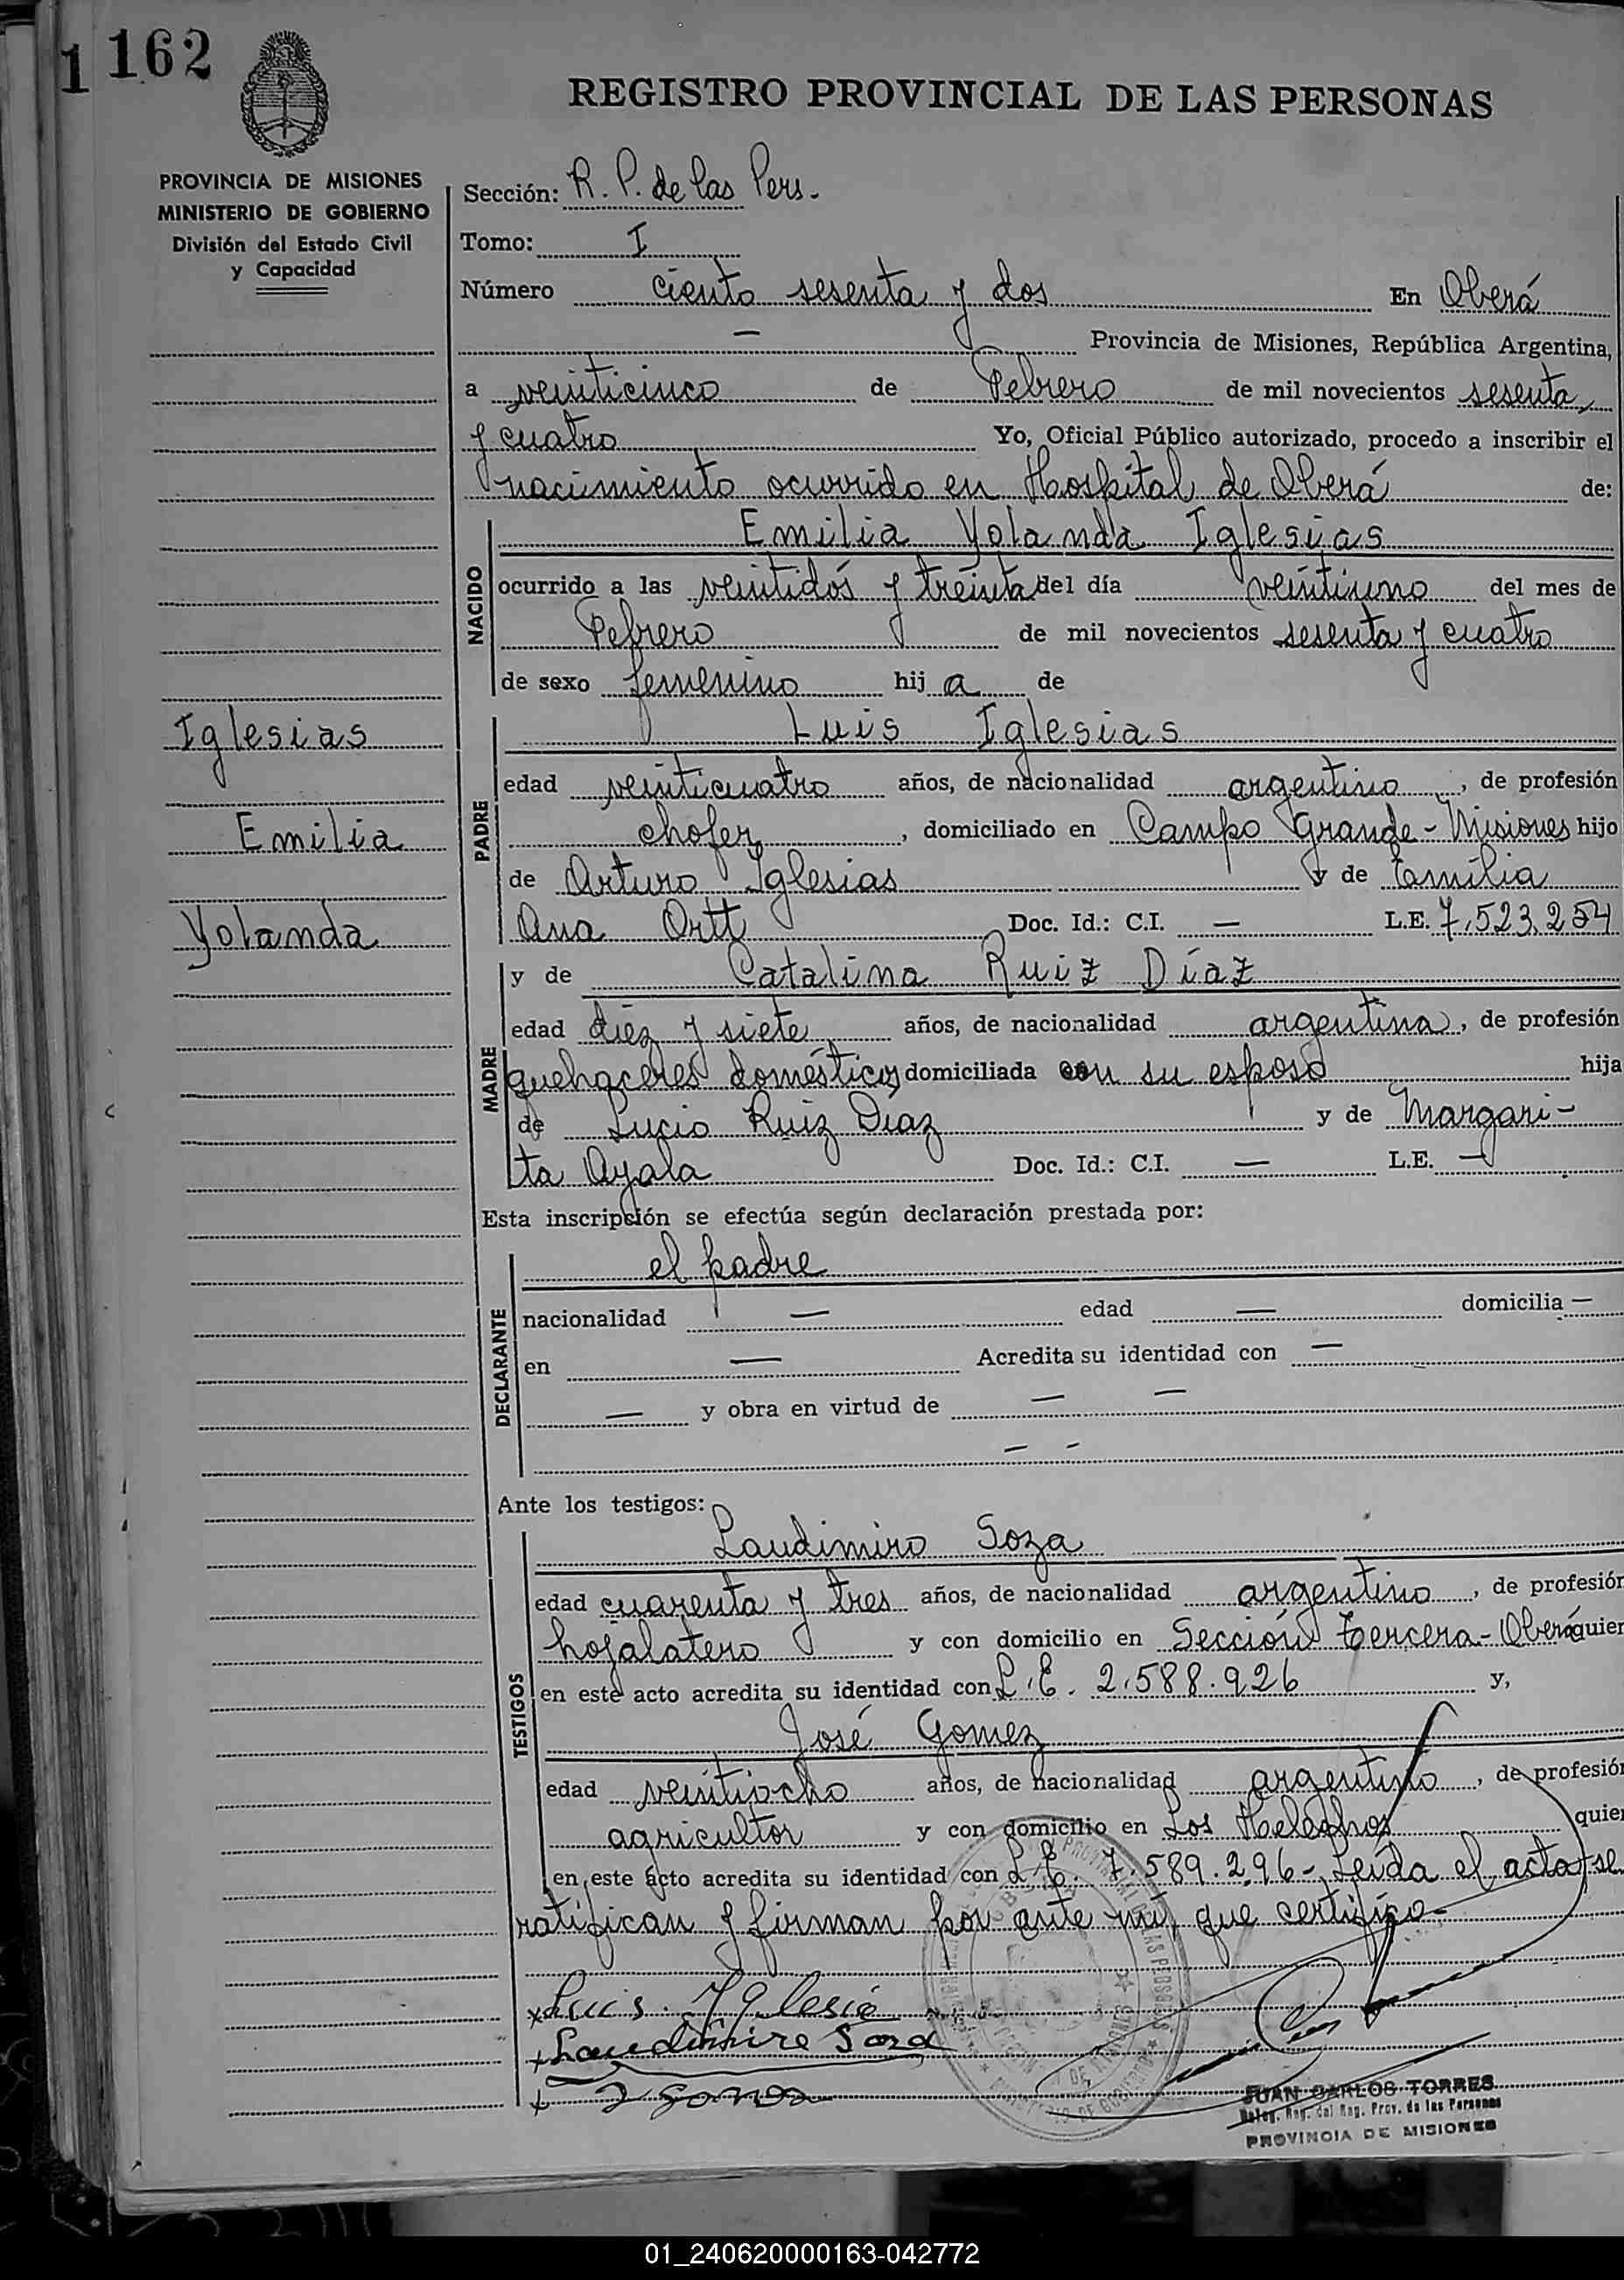 1 162
REGISTRO PROVINCIAL DE LAS PERSONAS
PROVINCIA DE MISIONES
MINISTERIO DE GOBIERNO
División del Estado Civil
y Capacidad
Sección: R. P. de las Pers.
Tomo: I
Número ciento sesenta y dos En Oberá
— Provincia de Misiones, República Argentina,
a veinticinco de Febrero de mil novecientos sesenta
y cuatro Yo, Oficial Público autorizado, procedo a inscribir el
nacimiento ocurrido en Hospital de Oberá de:
NACIDO
Emilia Yolanda Iglesias
ocurrido a las veintidós y treinta del día veintiuno del mes de
Febrero de mil novecientos sesenta y cuatro
de sexo femenino hij a de
Iglesias
Emilia
Yolanda
PADRE
Luis Iglesias
edad veinticuatro años, de nacionalidad argentino, de profesión
chofer, domiciliado en Campo Grande - Misiones hijo
de Arturo Iglesias y de Familia
Ana Ortt Doc. Id.: C.I. — L.E. 7.523.254
MADRE
y de Catalina Ruiz Díaz
edad diez y siete años, de nacionalidad argentina, de profesión
quehaceres domésticos domiciliada con su esposo hija
de Lucio Ruiz Díaz y de Margari-
ta Ayala Doc. Id.: C.I. — L.E. —
Esta inscripción se efectúa según declaración prestada por:
DECLARANTE
el padre
nacionalidad — edad — domicilia —
en — Acredita su identidad con —
— y obra en virtud de — —
— —
Ante los testigos:
TESTIGOS
Laudimiro Soza
edad cuarenta y tres años, de nacionalidad argentino, de profesión
hojalatero y con domicilio en Sección tercera - Oberá quien
en este acto acredita su identidad con L.E. 2.588.926 y,
José Gomez
edad veintiocho años, de nacionalidad argentino, de profesión
agricultor y con domicilio en Los Helechos quien
en este acto acredita su identidad con L.E. 7.589.296 - Leida el acta, se
ratifican y firman por ante mí, que certifico -
x Luis. Yglesia
x Laudimire Soza
JUAN CARLOS TORRES
Deleg. Reg. del Reg. Prov. de las Personas
PROVINCIA DE MISIONES
01_240620000163-042772